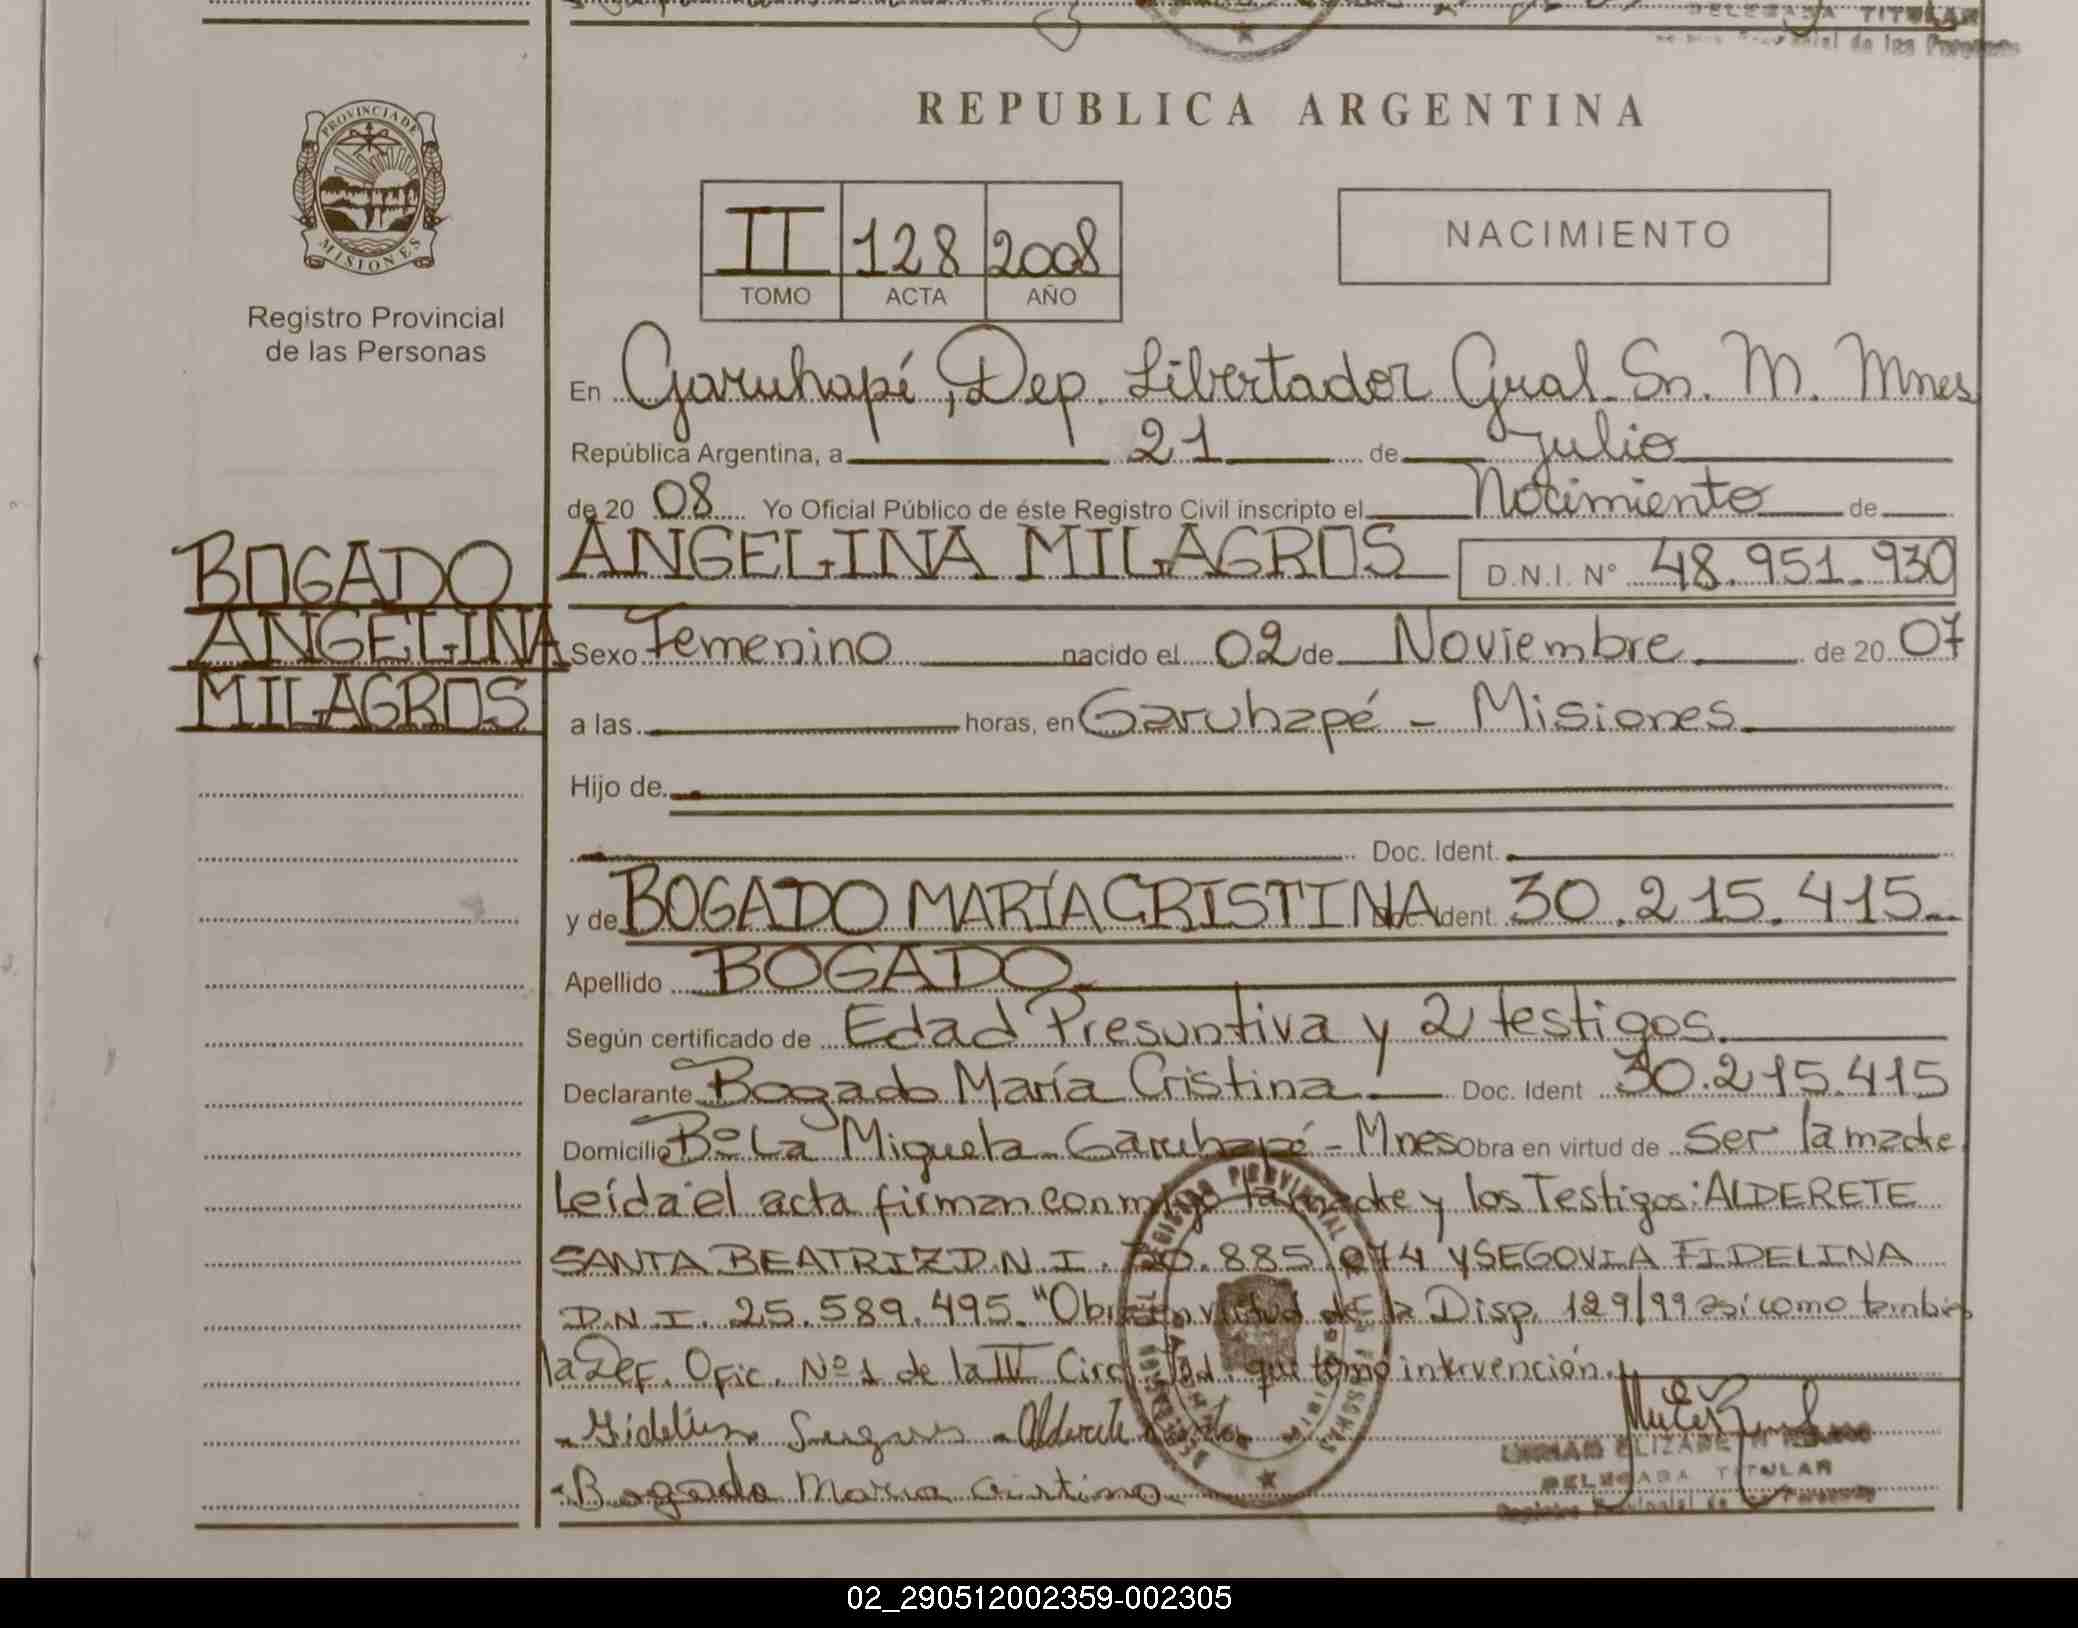 DELEGADA TITULAR
PROVINCIA DE
MISIONES
Registro Provincial
de las Personas
REPUBLICA ARGENTINA
II 128 2008
TOMO ACTA AÑO
NACIMIENTO
En Garuhapí, Dep. Libertador Gral. Sn. M. Mnes
República Argentina, a 21 de Julio
de 20 08 Yo Oficial Público de éste Registro Civil inscripto el Nacimiento de
ANGELINA MILAGROS D.N.I. Nº 48.951.930
BOGADO
ANGELINA
MILAGROS
Sexo Femenino nacido el 02 de Noviembre de 20 07
a las horas, en Garuhapé - Misiones
Hijo de
Doc. Ident.
y de BOGADO MARÍA CRISTINA Doc. Ident. 30.215.415
Apellido BOGADO
Según certificado de Edad Presuntiva y 2 testigos.
Declarante Bogado María Cristina Doc. Ident 30.215.415
Domicilio Bº La Miguela Garuhapé - Mnes Obra en virtud de ser la madre
Leída el acta firman conmigo la madre y los Testigos: ALDERETE
SANTA BEATRIZ D.N.I. 20.885.074 Y SEGOVIA FIDELINA
D.N.I. 25.589.495. "Obra en virtud de la Disp. 129/99 así como también
la Def. Ofic. Nº 1 de la IV Circ. Jud. que tomó intervención.
- Fidelina - Alderete
- Bogado Maria Cristina
ELIZABETH
DELEGADA TITULAR
02_290512002359-002305